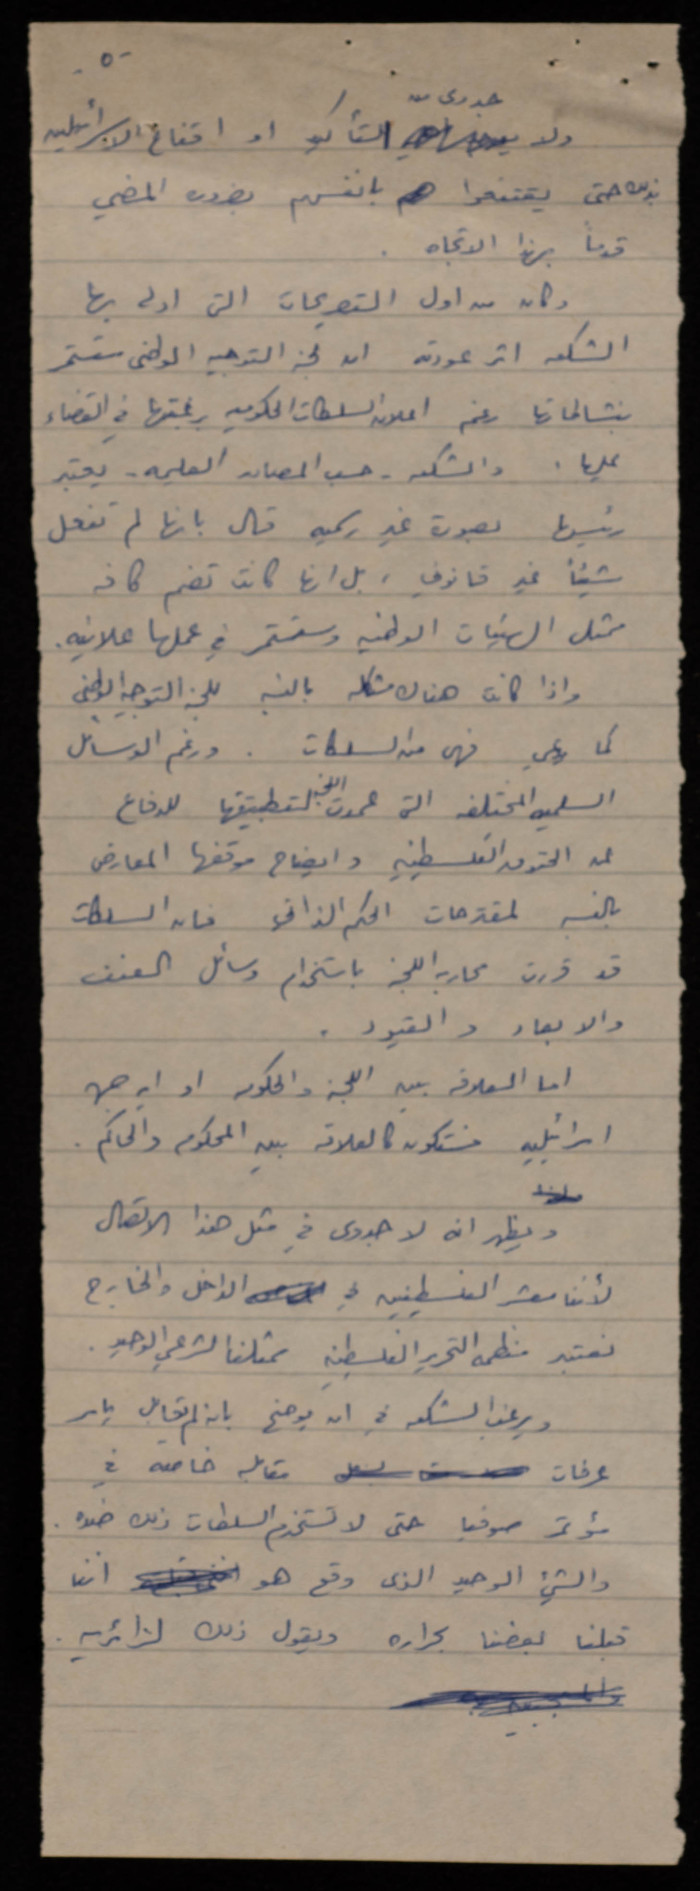 -٥-
جدوى من
ولا التأكيد او اقناع الاسرائيليين
بذلك حتى يقتنعوا هم بانفسهم بضرورة المضي
قدماً بهذا الاتجاه .
وكان من اول التصريحات التي ادلى بها
الشكعه اثر عودته ان لجنة التوجيه الوطني ستستمر
بنشاطاتها رغم اعلان السلطات الحكوميه رغبتها في القضاء
عليها . والشكعه - حسب المصادر العليمه - يعتبر
رئيسها بصورة غير رسميه قال بانها لم تفعل
شيئاً غير قانوني ، بل انها كانت تضم كافه
ممثلي الهيئات الوطنيه وستستمر في عملها علانيه .
واذا كانت هناك مشكله بالنسبه للجنة التوجيه الوطني
كما يدعي فهي من السلطات . ورغم الوسائل
السلميه المختلفه التي عمدت اللجنة لتطبيقها للدفاع
عن الحقوق الفلسطينيه وايضاح موقفها المعارض
بالنسبه لمقترحات الحكم الذاتي فان السلطات
قد قررت محاربة اللجنة باستخدام وسائل العنف
والابعاد والقيود .
اما العلاقه بين اللجنة والحكومه او ايه جهه
اسرائيليه فستكون كالعلاقه بين المحكوم والحاكم .
ويظهر انه لا جدوى في مثل هذا الاتصال
لأننا معشر الفلسطينيين في الداخل والخارج
نعتبر منظمه التحرير الفلسطينيه ممثلنا الشرعي الوحيد .
ويرغب الشكعه في ان يوضح بانه لم يقابل ياسر
عرفات مقابله خاصة في
مؤتمر صوفيا حتى لا تستخدم السلطات ذلك ضده .
والشيء الوحيد الذي وقع هو اننا
قبلنا بعضنا بحراره ويقول ذلك لزائريه .